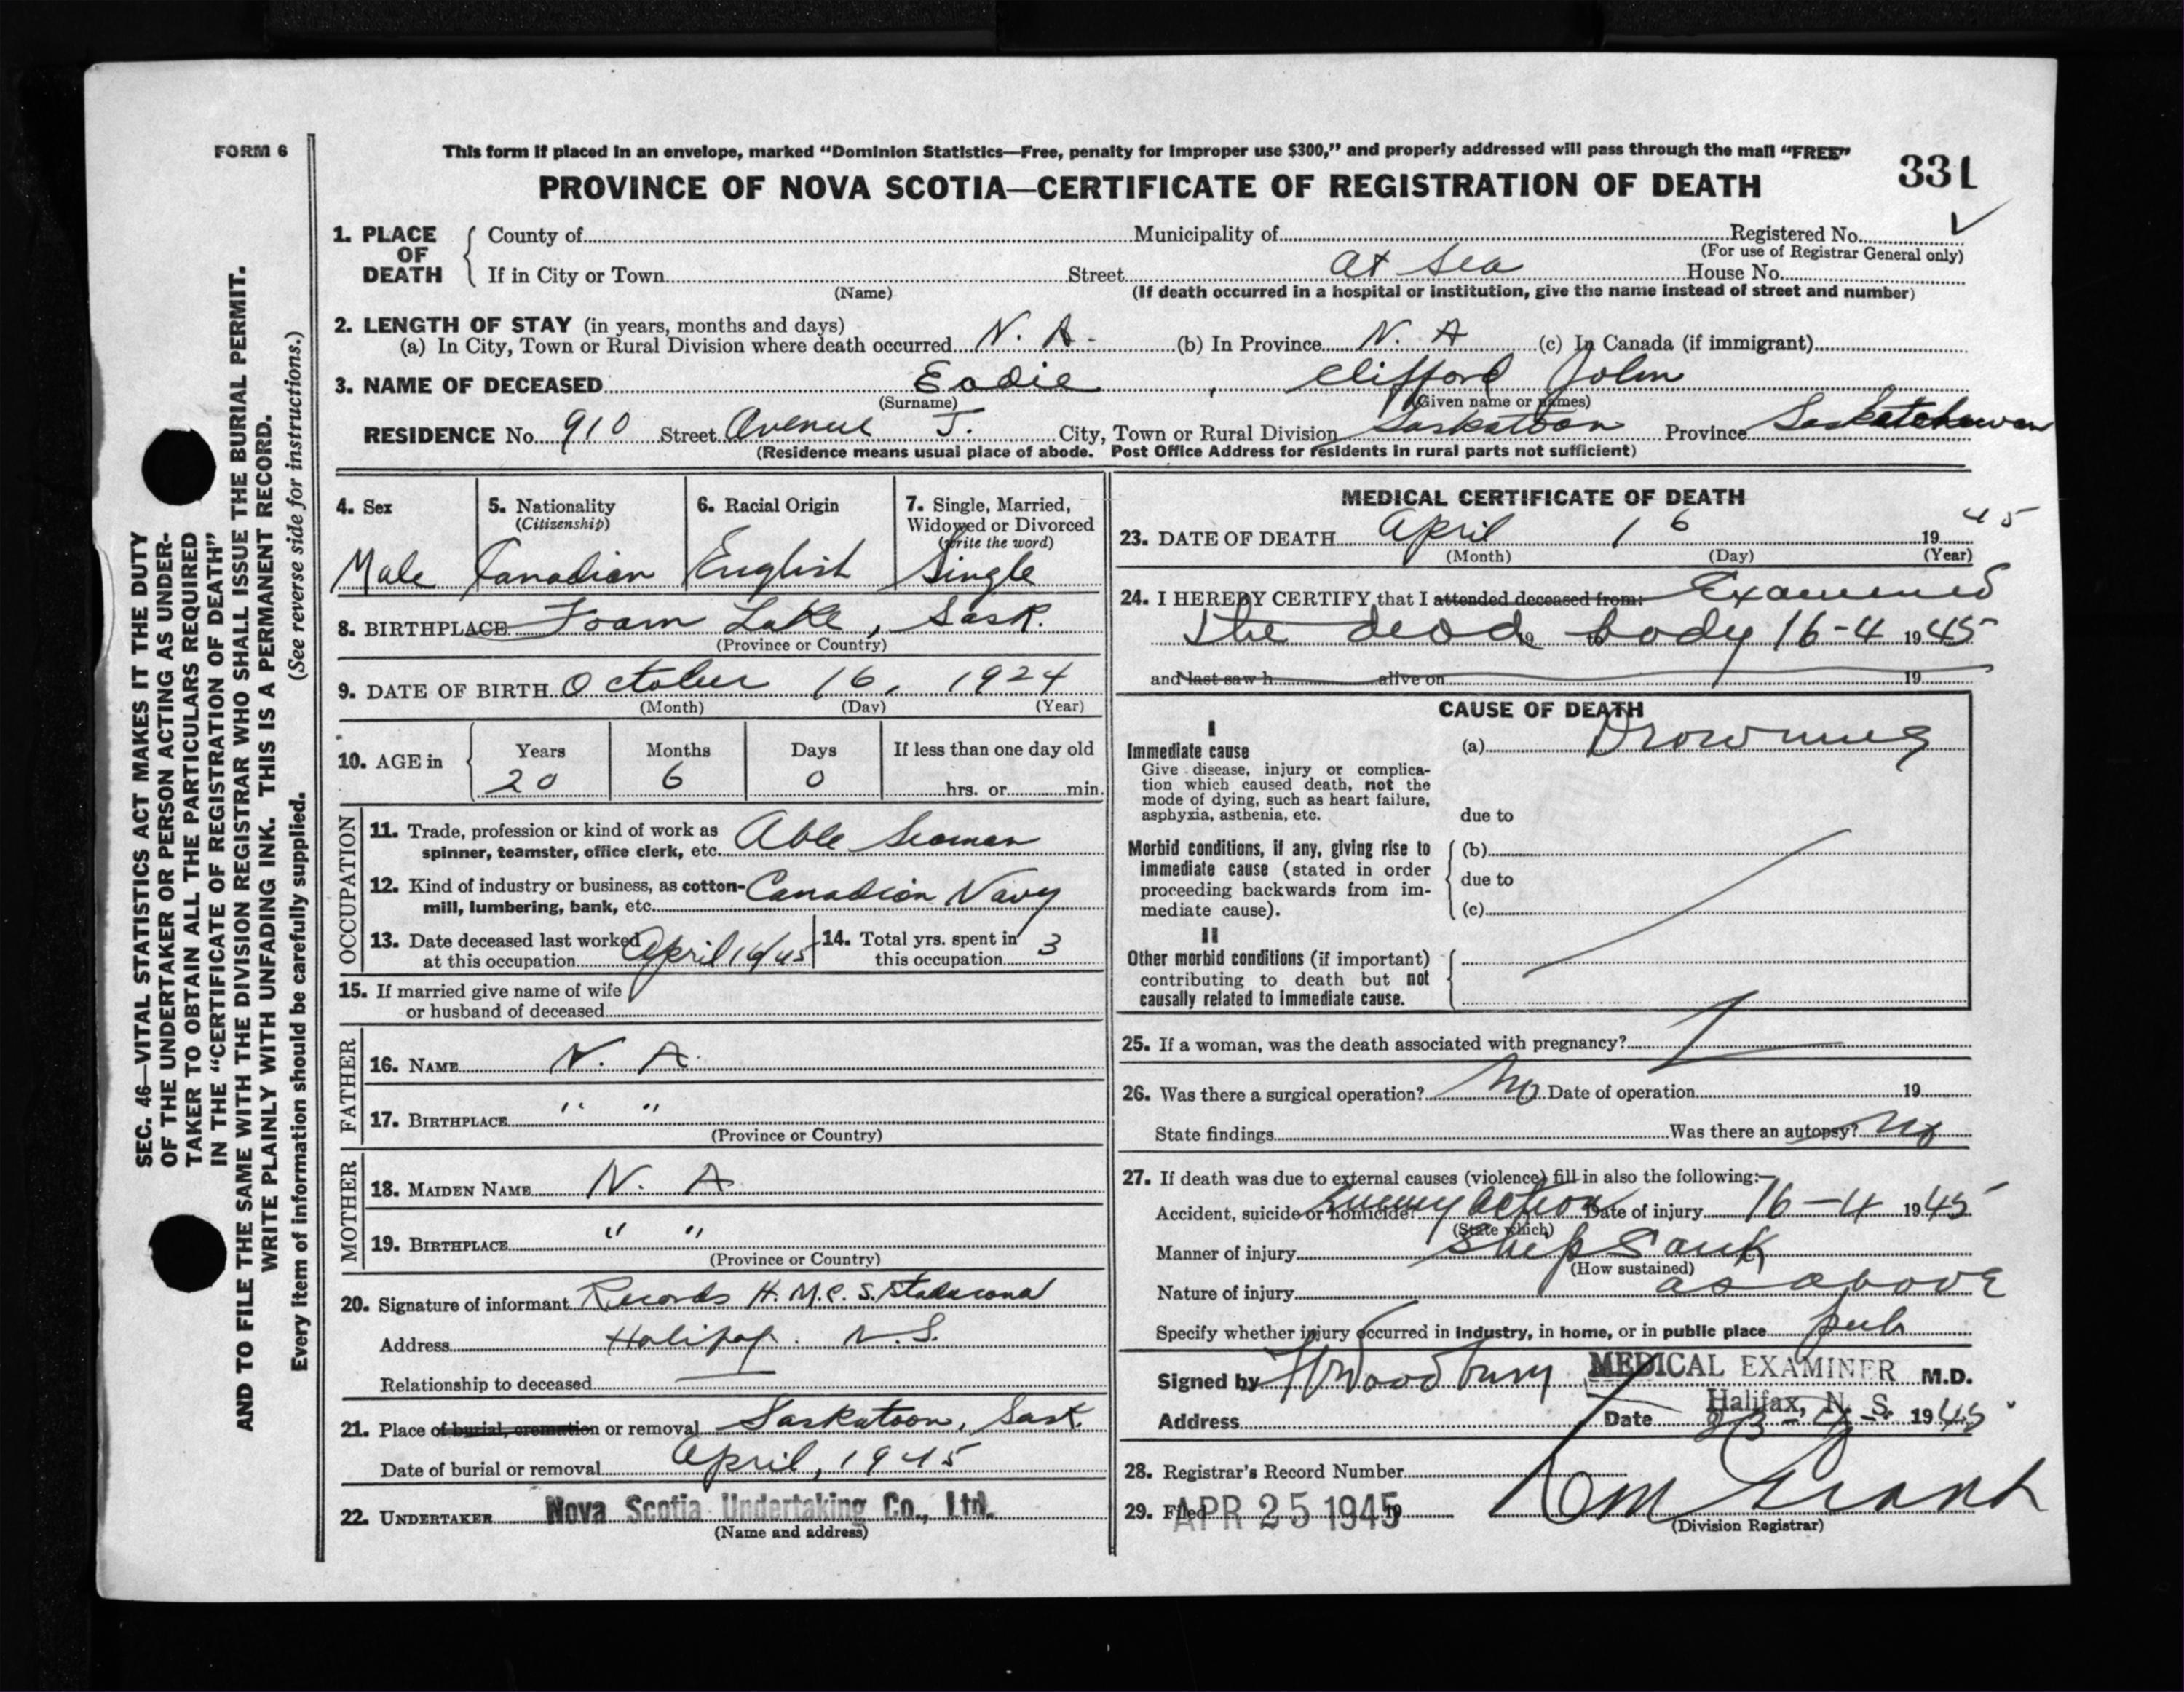 FORM 6
This form if placed in an envelope, marked "Dominion Statistics—Free, penalty for improper use $300," and properly addressed will pass through the mail "FREE"
331
PROVINCE OF NOVA SCOTIA—CERTIFICATE OF REGISTRATION OF DEATH
1. PLACE OF DEATH
County of Municipality of Registered No.
(For use of Registrar General only)
If in City or Town Street At Sea House No.
(Name) (If death occurred in a hospital or institution, give the name instead of street and number)
2. LENGTH OF STAY (in years, months and days)
(a) In City, Town or Rural Division where death occurred N. A. (b) In Province N. A (c) In Canada (if immigrant)
3. NAME OF DECEASED Eadie, Clifford John
(Surname) (Given name or names)
RESIDENCE No. 910 Street Avenue J. City, Town or Rural Division Saskatoon Province Saskatchewan
(Residence means usual place of abode. Post Office Address for residents in rural parts not sufficient)
4. Sex
Male
5. Nationality
(Citizenship)
Canadian
6. Racial Origin
English
7. Single, Married,
Widowed or Divorced
(write the word)
Single
8. BIRTHPLACE Foam Lake, Sask.
(Province or Country)
9. DATE OF BIRTH October 16, 1924
(Month) (Day) (Year)
10. AGE in Years Months Days If less than one day old
20 6 0 hrs. or min.
OCCUPATION
11. Trade, profession or kind of work as
spinner, teamster, office clerk, etc. Able Seaman
12. Kind of industry or business, as cotton-
mill, lumbering, bank, etc. Canadian Navy
13. Date deceased last worked
at this occupation April 16/45
14. Total yrs. spent in
this occupation 3
15. If married give name of wife
or husband of deceased
FATHER
16. NAME N. A.
17. BIRTHPLACE " "
(Province or Country)
MOTHER
18. MAIDEN NAME N. A
19. BIRTHPLACE " "
(Province or Country)
20. Signature of informant Records H. M. C. S. Stadacona
Address Halifax. N. S.
Relationship to deceased —
21. Place of burial, cremation or removal Saskatoon, Sask.
Date of burial or removal April, 1945
22. UNDERTAKER Nova Scotia Undertaking Co., Ltd.
(Name and address)
MEDICAL CERTIFICATE OF DEATH
23. DATE OF DEATH April 16 1945
(Month) (Day) (Year)
24. I HEREBY CERTIFY that I attended deceased from: Examined
the dead 19 to body 16-4 1945
and last saw h alive on 19
CAUSE OF DEATH
I
Immediate cause (a) Drowning
Give disease, injury or complica-
tion which caused death, not the
mode of dying, such as heart failure,
asphyxia, asthenia, etc. due to
Morbid conditions, if any, giving rise to (b)
immediate cause (stated in order
proceeding backwards from im- due to
mediate cause). (c)
II
Other morbid conditions (if important)
contributing to death but not
causally related to immediate cause.
25. If a woman, was the death associated with pregnancy?
26. Was there a surgical operation? No Date of operation 19
State findings Was there an autopsy? No
27. If death was due to external causes (violence) fill in also the following:—
Accident, suicide or homicide? Enemy action Date of injury 16-4 1945
(State which)
Manner of injury Ship Sank
(How sustained)
Nature of injury as above
Specify whether injury occurred in industry, in home, or in public place pub
Signed by Woodbury MEDICAL EXAMINER M.D.
Halifax, N. S.
Address Date 23-4- 1945
28. Registrar's Record Number
29. Filed APR 25 1945 19 Grant
(Division Registrar)
SEC. 46—VITAL STATISTICS ACT MAKES IT THE DUTY
OF THE UNDERTAKER OR PERSON ACTING AS UNDER-
TAKER TO OBTAIN ALL THE PARTICULARS REQUIRED
IN THE "CERTIFICATE OF REGISTRATION OF DEATH"
AND TO FILE THE SAME WITH THE DIVISION REGISTRAR WHO SHALL ISSUE THE BURIAL PERMIT.
WRITE PLAINLY WITH UNFADING INK. THIS IS A PERMANENT RECORD.
Every item of information should be carefully supplied. (See reverse side for instructions.)